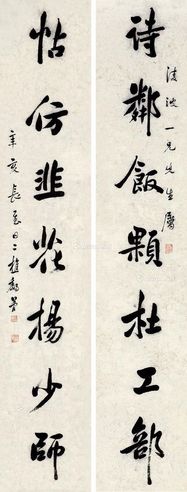 詩鄰飯顆杜工部
波一兄先生屬
帖仿韭花楊少師
辛亥長至日二樵